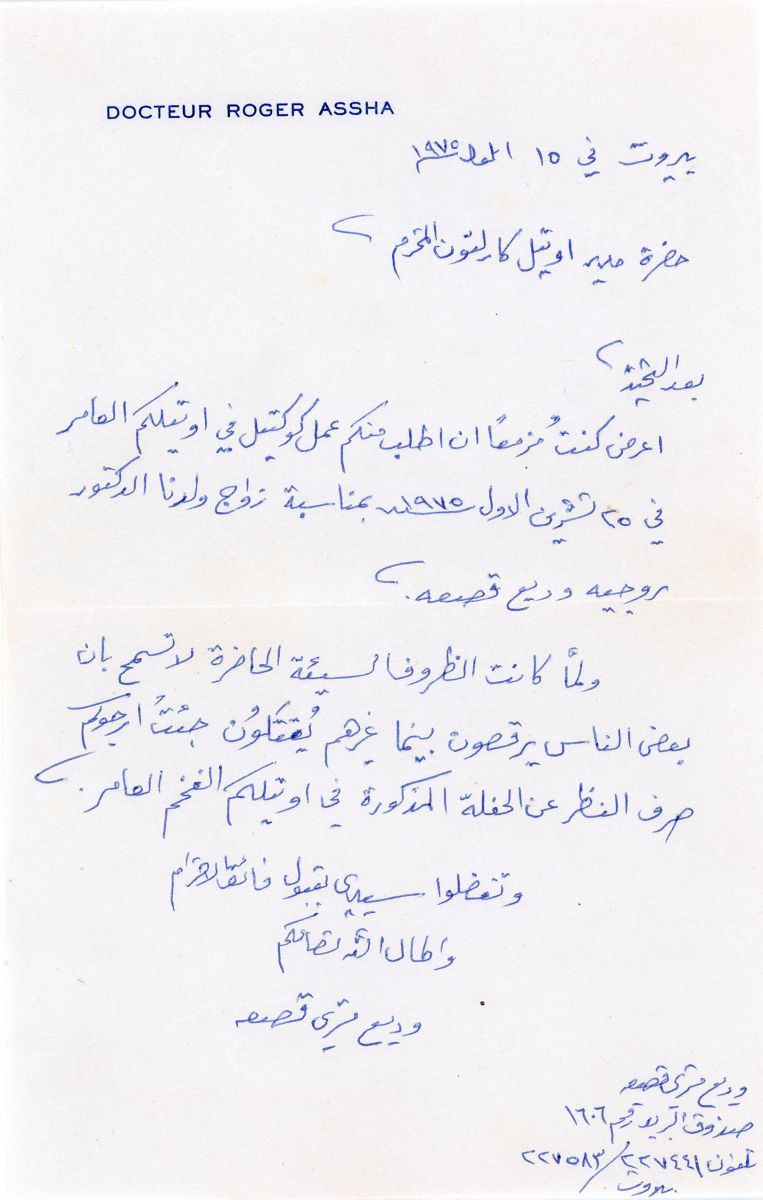 DOCTEUR ROGER ASSHA
بيروت في ١٥ ايلول ١٩٧٥
حضرة مدير اوتيل كارلتون المحترم
بعد التحية
اعرض كنتُ مُزمعًا ان اطلب منكم عمل كوكتيل في اوتيلكم العامر
في ٢٥ تشرين الاول ١٩٧٥ بمناسبة زواج ولدنا الدكتور
روجيه وديع قصعه.
ولمّا كانت الظروف السيئة الحاضرة لا تسمح بان
بعض الناس يرقصون بينما غيرهم يُقتَلُون جئتُ ارجوكم
صرف النظر عن الحفلة المذكورة في اوتيلكم الفخم العامر.
وتفضلوا سيدي بقبول فائق الاحترام
واطال الله بقائكم
وديع متري قصعه
وديع متري قصعه
صندوق البريد رقم ١٦٠٦
تلفون ٢٢٧٤٤١/٢٢٧٥٨٣
بيروت